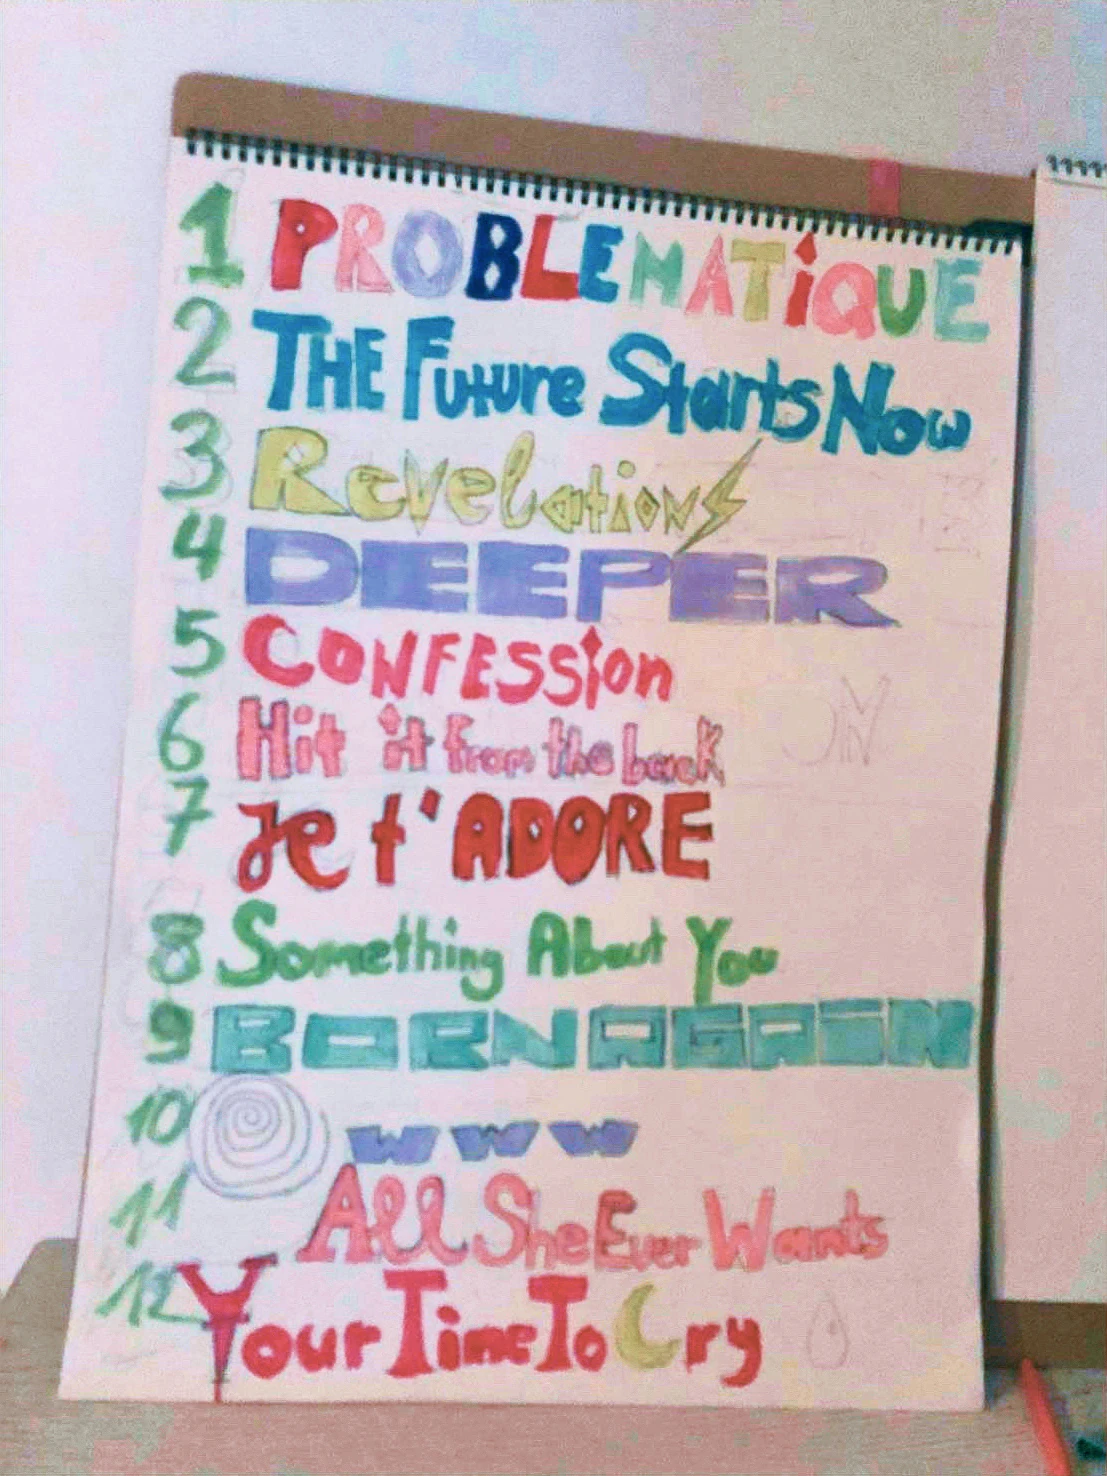 1 PROBLEMATiQUE
2 THE Future Starts Now
3 Revelations
4 DEEPER
5 CONFESSion
6 Hit it from the back
7 Je t'ADORE
8 Something About You
9 BORN AGAiN
10 www
11 All She Ever Wants
12 Your Time To Cry